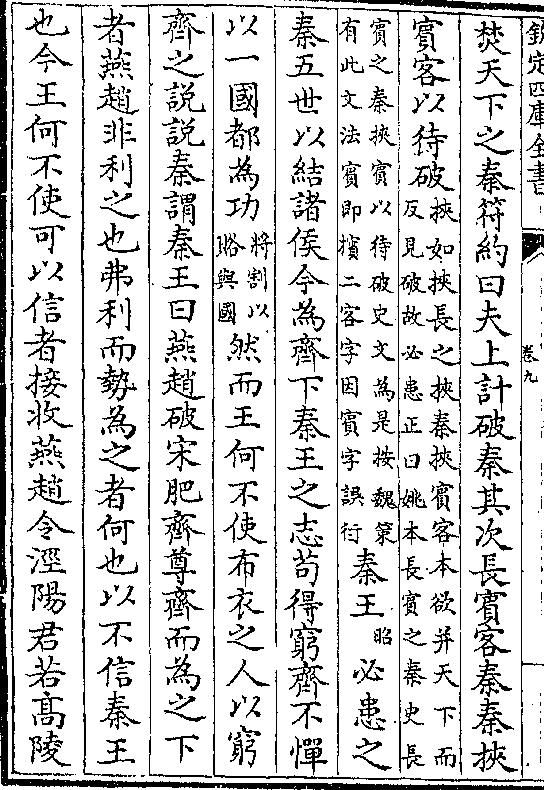 欽定四庫全書
卷九
焚天下之秦符約曰夫上計破秦其次長賓客秦秦挾
賓客以待破挾如挾長之挾秦挾賓客本欲并天下而
反見破故必患正曰姚本長賓之秦史長
賓之秦挾賓以待破史文為是按魏策
有此文法賓即擯二客字因賓字誤衍秦王昭必患之
秦五世以結諸侯今為齊下秦王之志苟得窮齊不憚
以一國都為功將割以
賂與國然而王何不使布衣之人以窮
齊之說說秦謂秦王曰燕趙破宋肥齊尊齊而為之下
者燕趙非利之也弗利而勢為之者何也以不信秦王
也今王何不使可以信者接收燕趙令涇陽君若髙陵